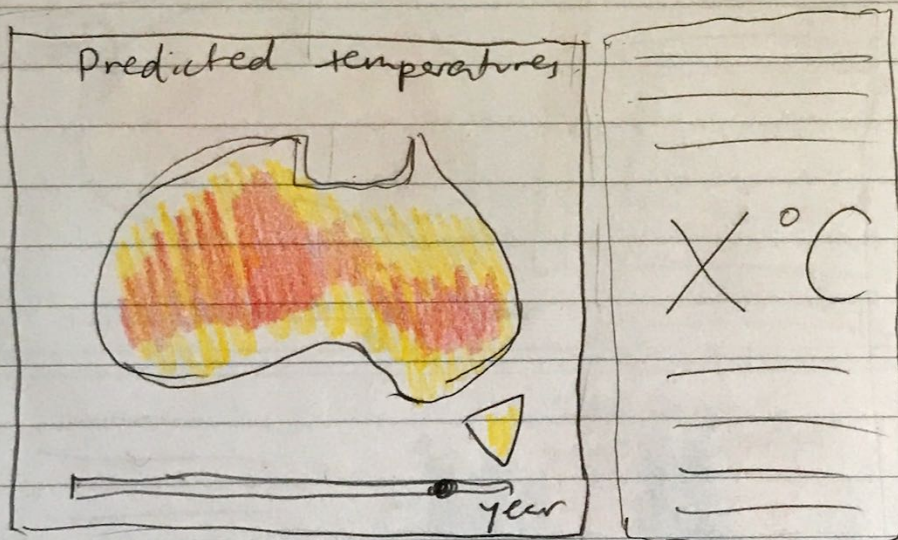 Predicted temperatures
X°C
year